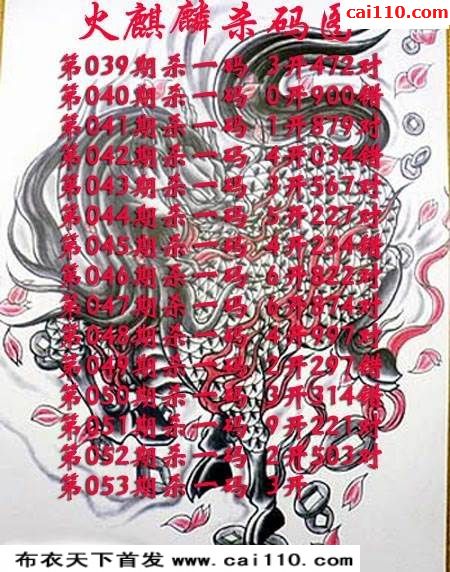 cai110.com
火麒麟杀码
第039期杀一码 3开472对
第040期杀一码 0开900错
第041期杀一码 1开879对
第042期杀一码 4开034错
第043期杀一码 3开567对
第044期杀一码 5开227对
第045期杀一码 4开234错
第046期杀一码 6开822对
第047期杀一码 6开874对
第048期杀一码 4开997对
第049期杀一码 2开297错
第050期杀一码 3开314错
第051期杀一码 9开221对
第052期杀一码 2开503对
第053期杀一码 3开
布衣天下首发 www.cai110.com